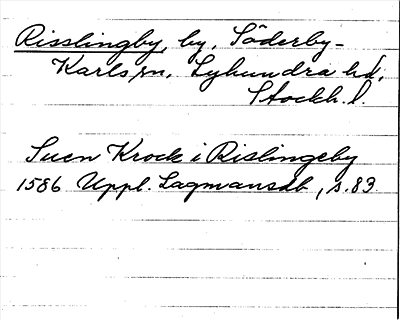 Risslingby, by, Söderby-
Karls sn, Lyhundra hd,
Stockh. l.
Suen Krock i Rislingeby
1586 Uppl. Lagmansdb, s. 83